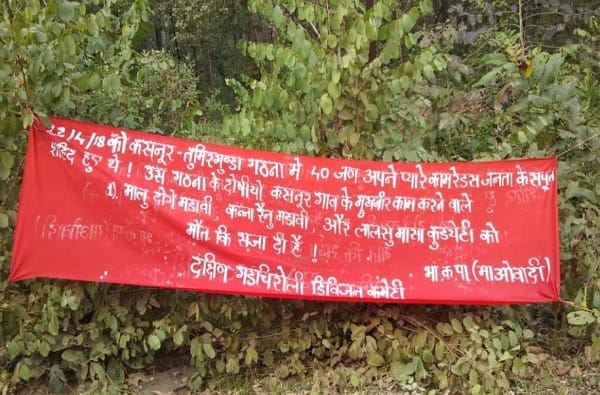 22/4/18 को कसनूर - तुमिरगुण्डा गठना में 40 जण अपने प्यारे कामरेडस जनता के सपूत
शहिद हुए थे! उस गठना के दोषीयो कसनूर गाव के मुखबीर काम करने वाले
1) मालु दोगे मडावी, कन्ना रैनु मडावी, और लालसु मासा कुडयेटी को
मौत कि सजा दी हैं!
दक्षिण गडचिरोली डिविजन कमेटी
भा क पा (माओवादी)